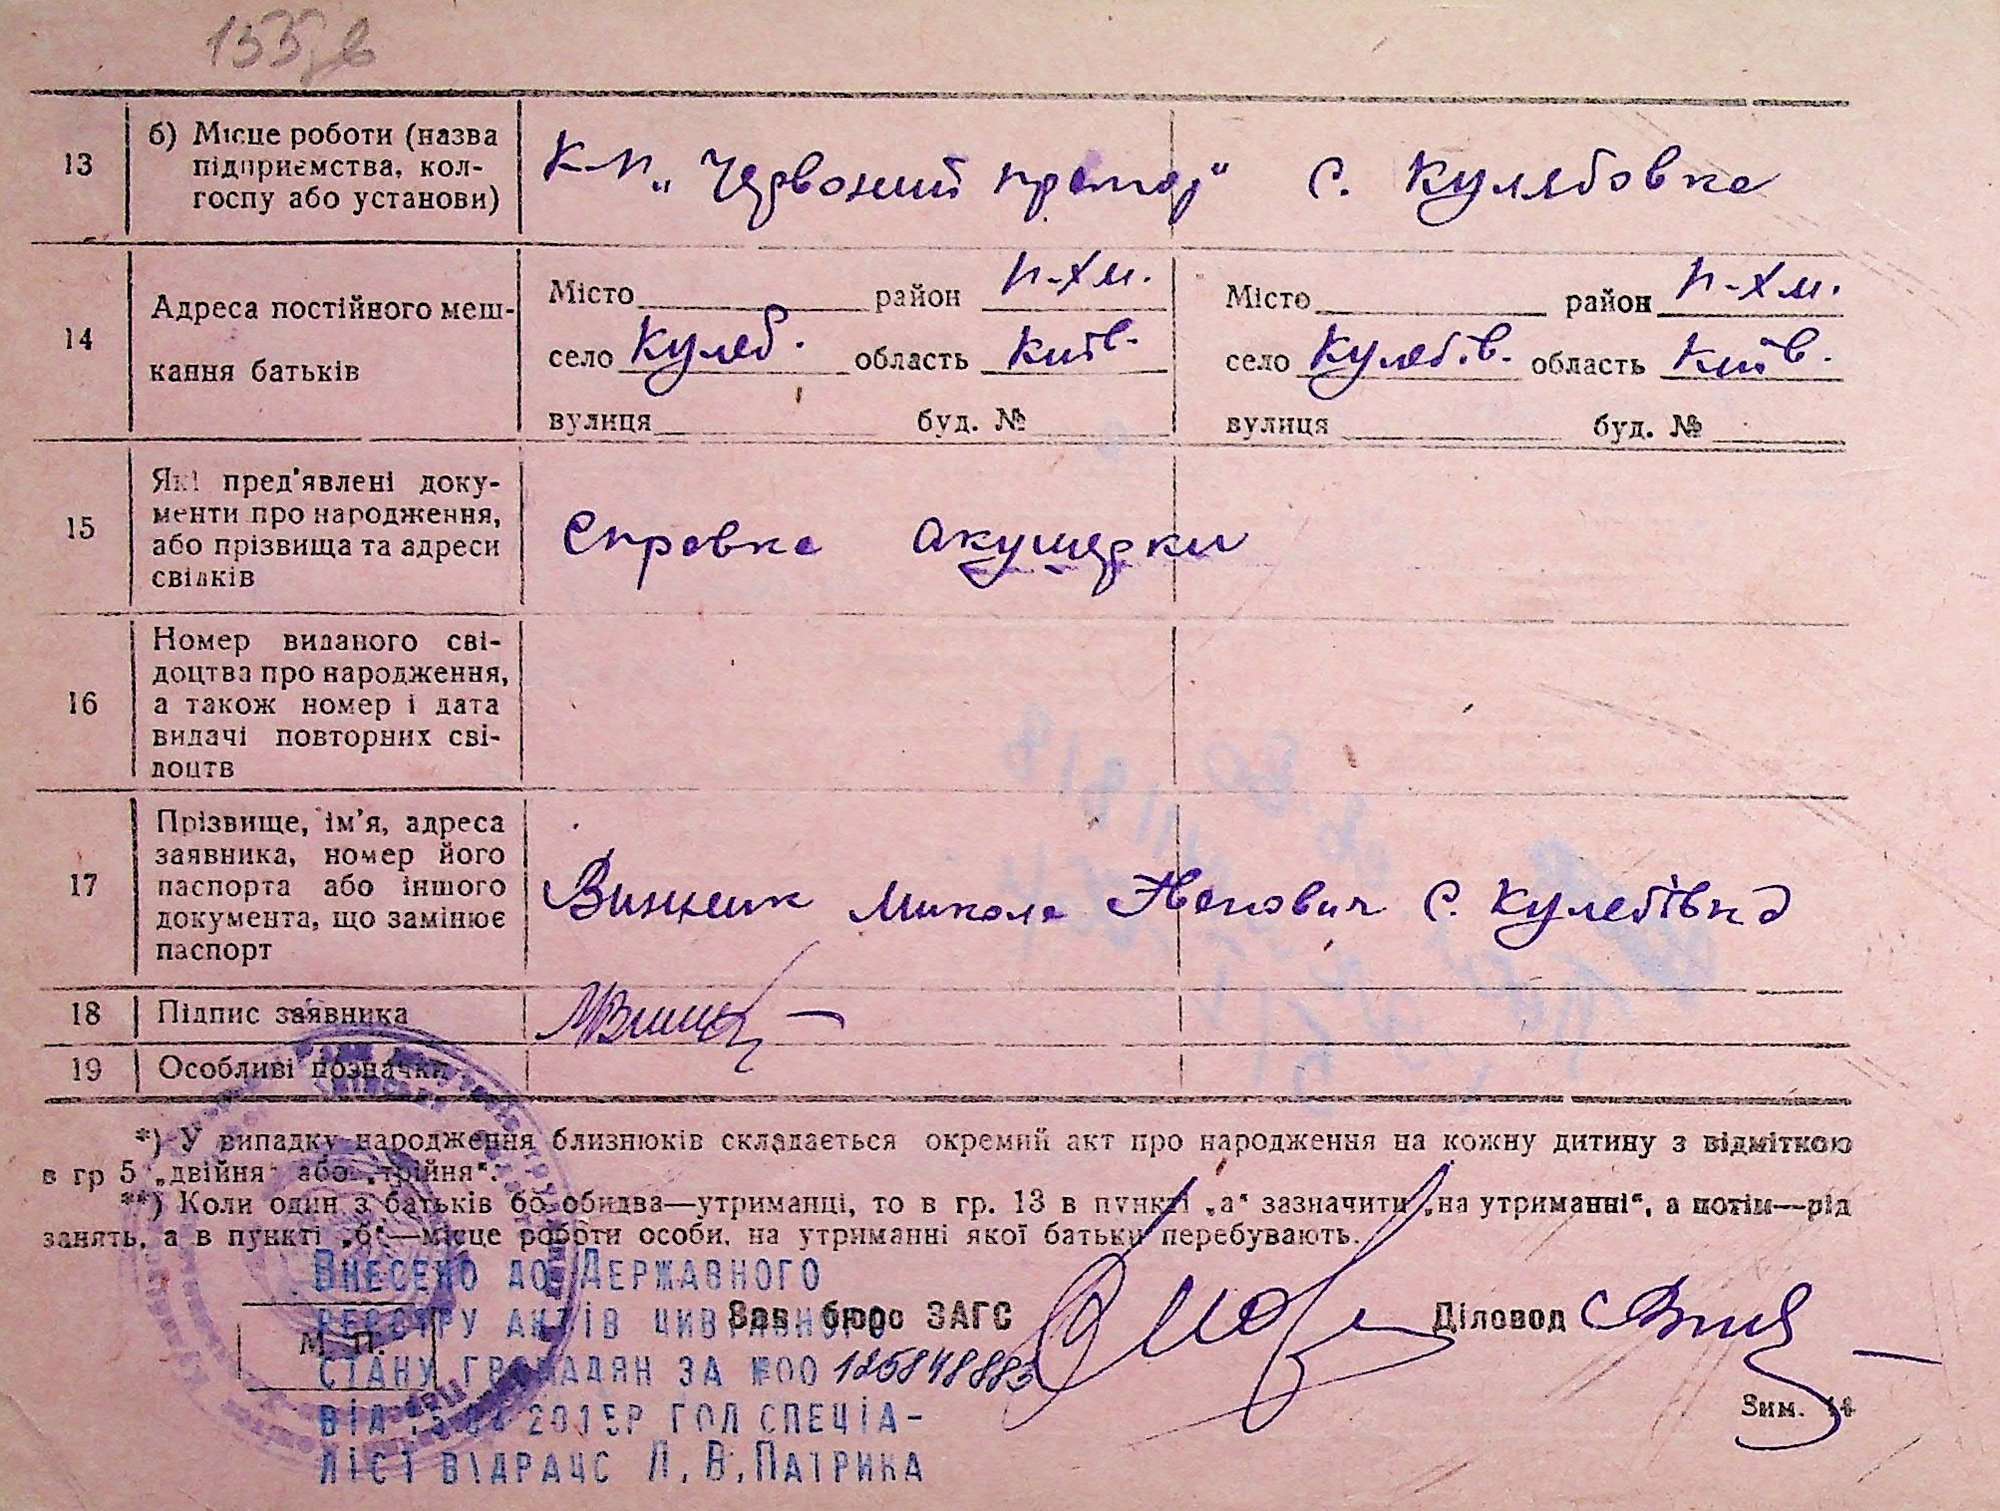 13 б) Місце роботи (назва
підприємства, кол-
госпу або установи)
"Червоний прапор" с. Кулябовка
14 Адреса постійного меш-
кання батьків
Місто район п-хм. Місто район п-хм.
село Куляб. область Київ. село Кулябів. область Київ.
вулиця буд. № вулиця буд. №
15 Які пред'явлені доку-
менти про народження,
або прізвища та адреси
свідків
Справка акушерки
16 Номер виданого сві-
доцтва про народження,
а також номер і дата
видачі повторних сві-
доцтв
17 Прізвище, ім'я, адреса
заявника, номер його
паспорта або іншого
документа, що замінює
паспорт
Микола с. Кулябівка
18 Підпис заявника
19 Особливі позначки
*) У випадку народження близнюків складається окремий акт про народження на кожну дитину з відміткою
в гр 5 „двійня“ або „трійня“.
**) Коли один з батьків бо обидва—утриманці, то в гр. 13 в пункті „а“ зазначити „на утриманні“, а потім—рід
занять, а в пункті „б“—місце роботи особи, на утриманні якої батьки перебувають.
Внесено до Державного
реєстру актів цивільного
стану громадян за №00 125848883
від 2015р гол спеціа-
ліст відрацс Л.В.Патрика
М. П.
Зав. бюро ЗАГС Діловод
Зим.